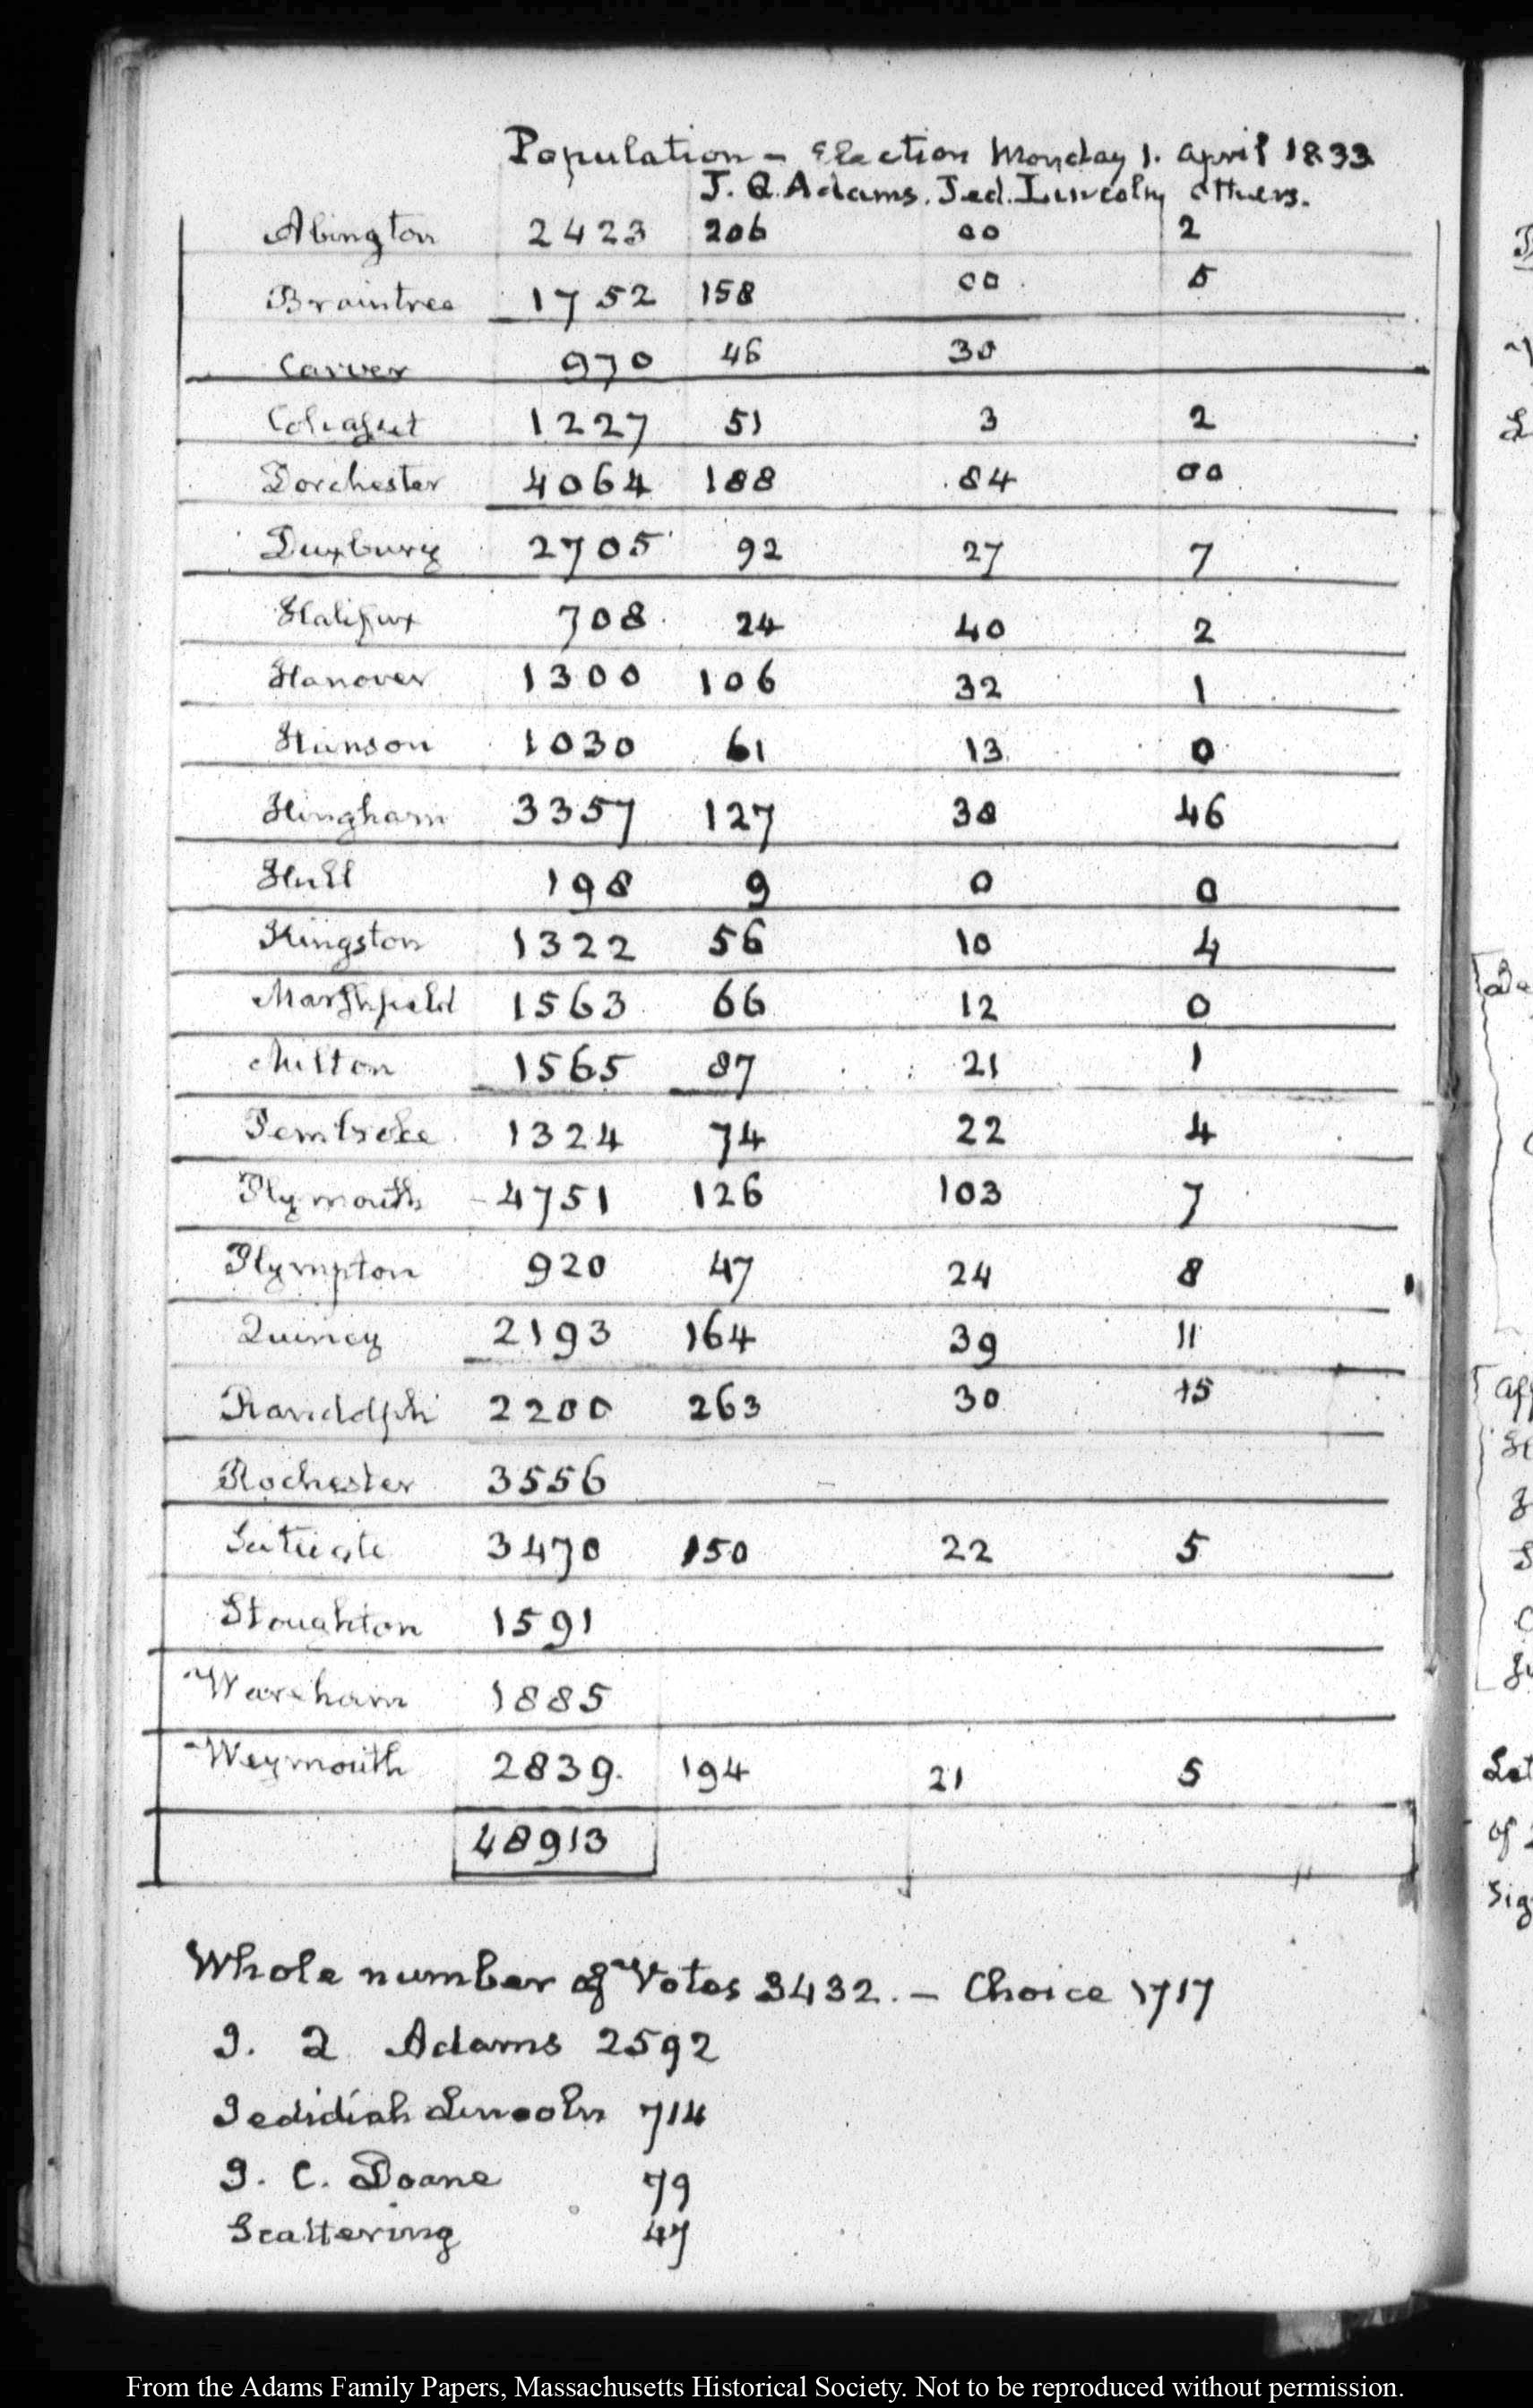 Population - Election Monday 1. April 1833
J. Q. Adams. Jed. Lincoln others.
Abington 2423 206 00 2
Braintree 1752 158 00 5
Carver 970 46 30
Cohasset 1227 51 3 2
Dorchester 4064 188 84 00
Duxbury 2705 92 27 7
Halifax 708 24 40 2
Hanover 1300 106 32 1
Hanson 1030 61 13 0
Hingham 3357 127 38 46
Hull 198 9 0 0
Kingston 1322 56 10 4
Marshfield 1563 66 12 0
Milton 1565 87 21 1
Pembroke 1324 74 22 4
Plymouth 4751 126 103 7
Plympton 920 47 24 8
Quincy 2193 164 39 11
Randolph 2200 263 30 15
Rochester 3556
Scituate 3470 150 22 5
Stoughton 1591
Wareham 1885
Weymouth 2839. 194 21 5
48913
Whole number of Votes 3432. - Choice 1717
J. Q Adams 2592
Jedidiah Lincoln 714
J. C. Doane 79
Scattering 47
From the Adams Family Papers, Massachusetts Historical Society. Not to be reproduced without permission.